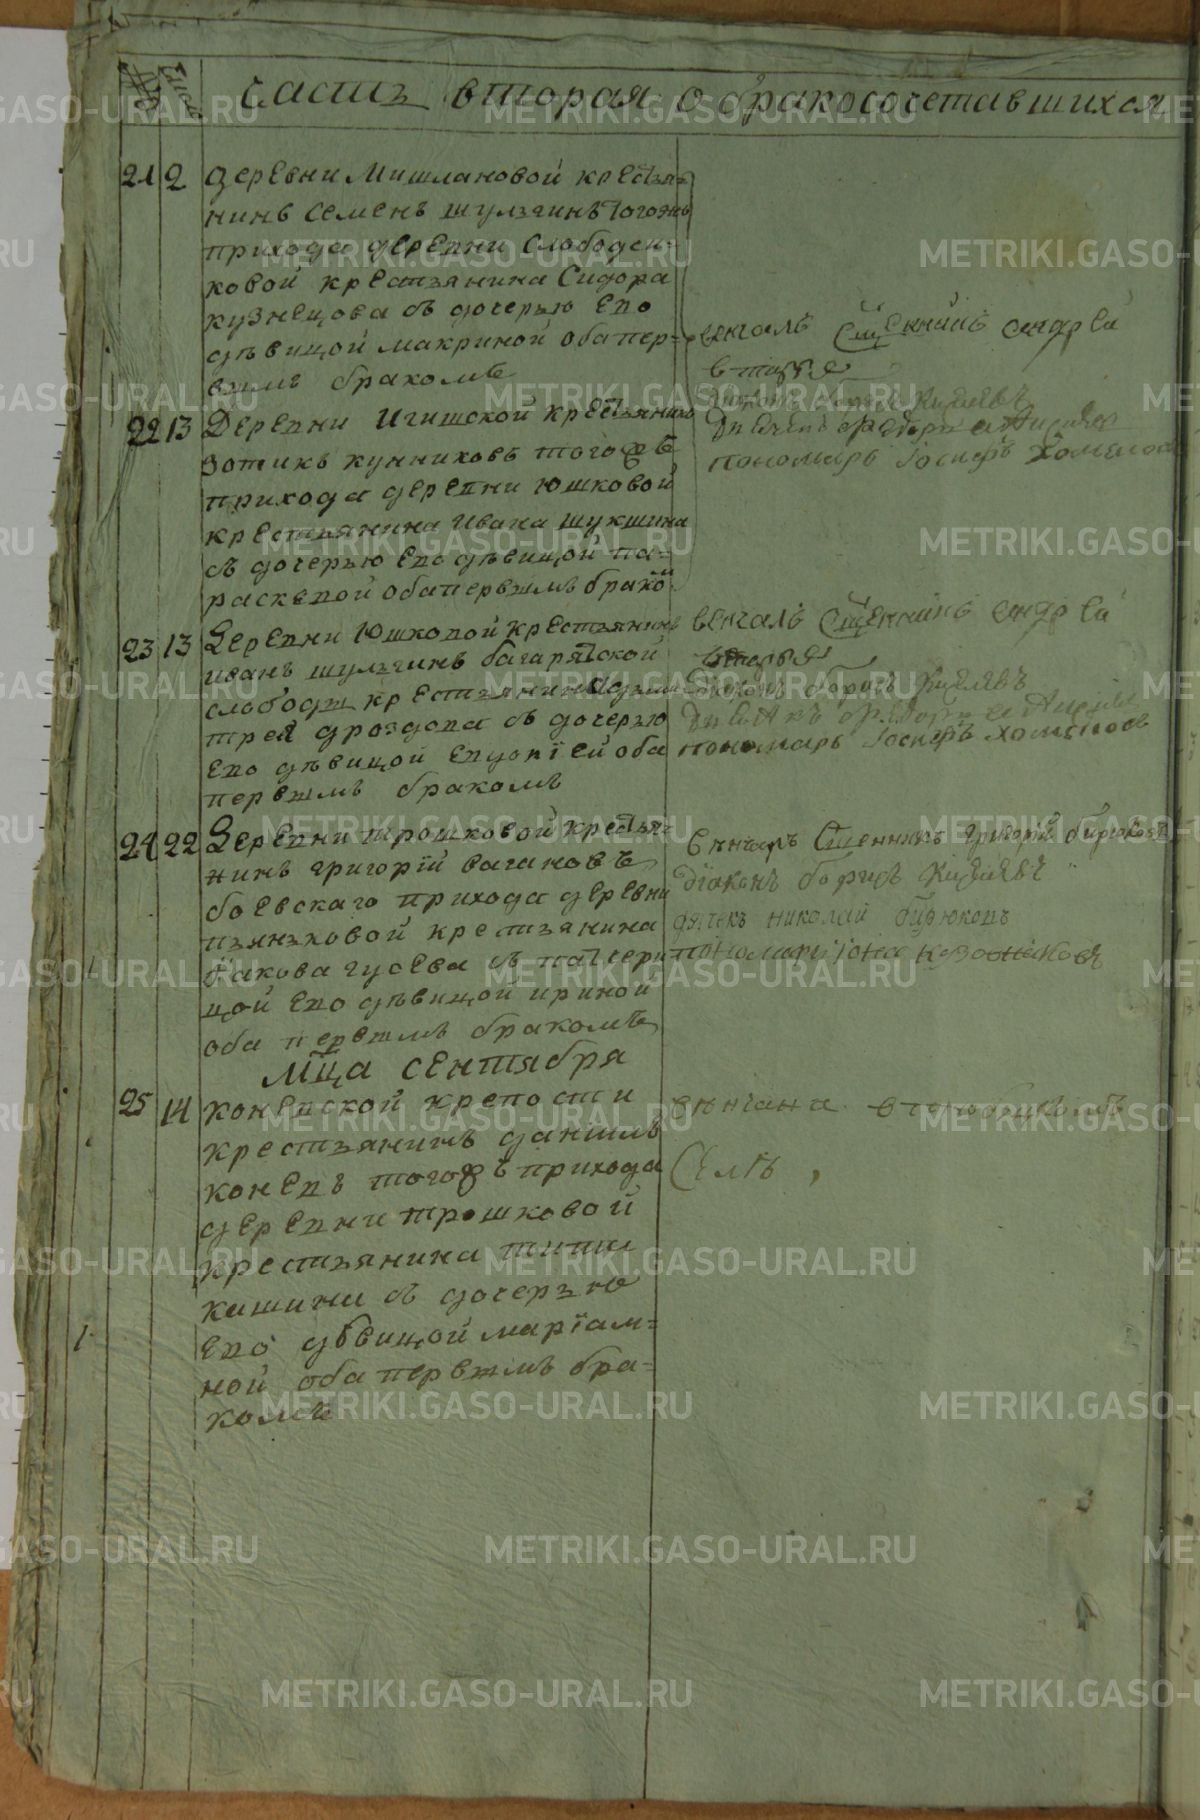 № Число Часть вторая о бракосочетавшихся
21 2 Деревни Мишлановой крестья=
нинъ Семенъ шулзгинъ тогожъ
прихода деревни Слободчи=
ковой крестьянина Сидора
кузнецова съ дочерью ево
дѣвицой макриной оба пер=
вымъ бракомъ
венчалъ Сщенникъ андрей
22 13 Деревни Игишской крестьянинъ
Зотикъ кунниховъ тогожъ
прихода деревни Юшковой
крестьянина Ивана шукшина
съ дочерью ево дѣвицой па=
раскевой оба первымъ брако
пономарь Іосифъ
23 13 Деревни Юшковой крестьянинъ
иванъ шулзгинъ багаряцкой
слободы крестьянина
дроздова съ дочерью
ево дѣвицой Евдокіей оба
первымъ бракомъ
венчалъ Сщенникъ андрей
діаконъ борисъ
пономарь Іосифъ
24 22 Деревни трошковой крестья=
нинъ григорій вагановъ
боевскаго прихода деревни
пьянковой крестьянина
Якова гусева съ патчери
цой ево дѣвицой ириной
оба первымъ бракомъ
венчалъ Сщенникъ григорій
діаконъ борисъ
дячекъ николай бирюковъ
пономарь іона
Мца сентября
25 14 Коневской крепости
крестьянинъ даніилъ
коневъ тогожъ прихода
деревни трошковой
крестьянина тита
кашина съ дочерью
ево дѣвицой маріам=
ной оба первымъ бра=
комъ
венчани в
Селѣ